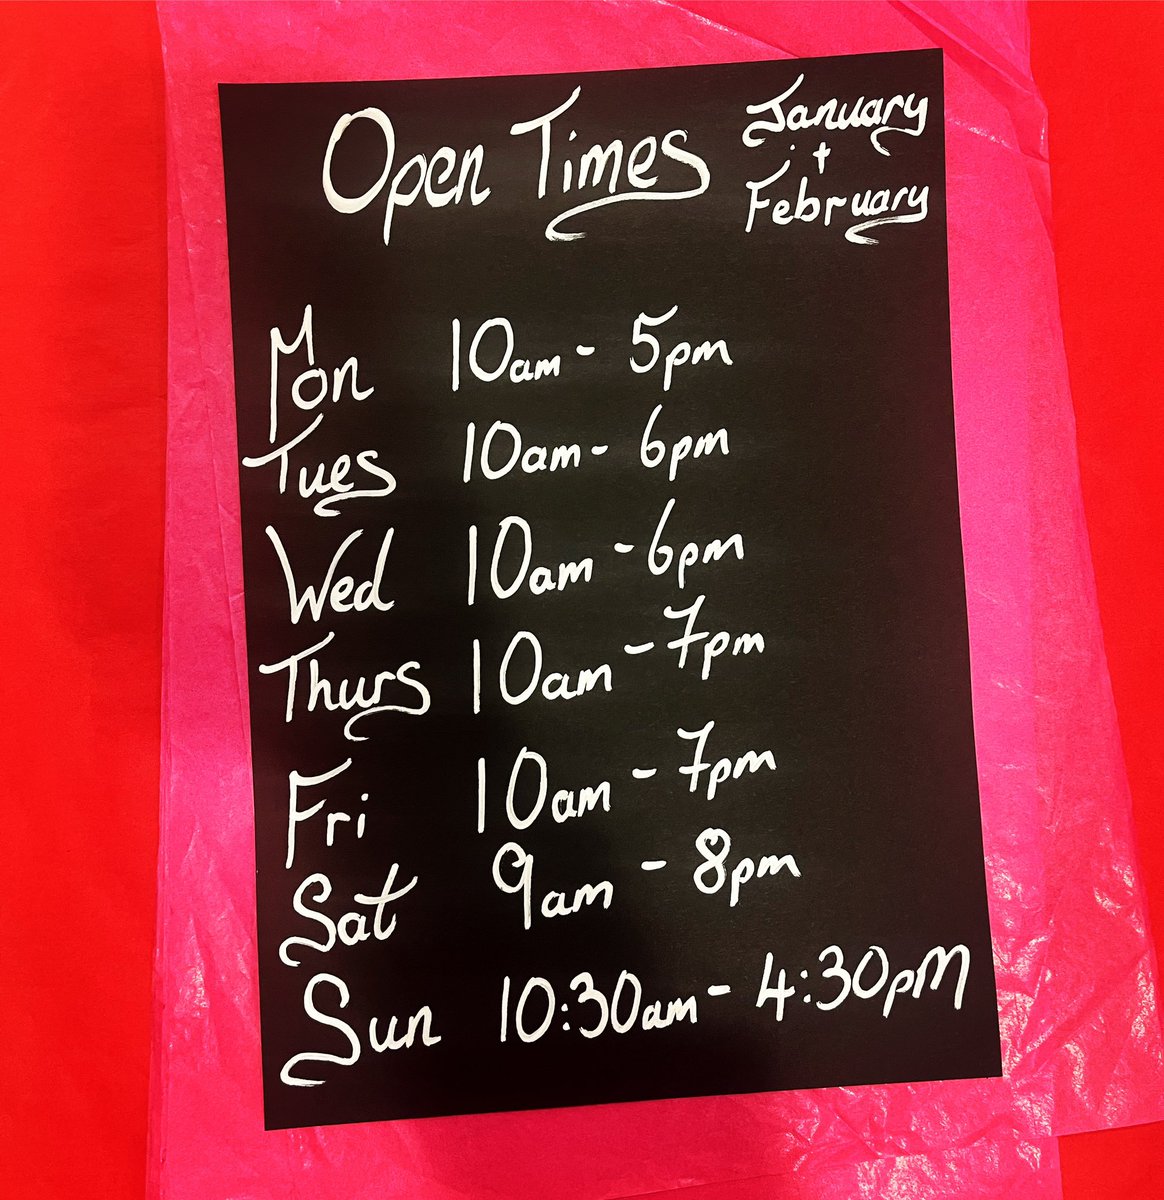 Open Times
January
+
February
Mon 10am - 5pm
Tues 10am - 6pm
Wed 10am - 6pm
Thurs 10am - 7pm
Fri 10am - 7pm
Sat 9am - 8pm
Sun 10:30am - 4:30pm